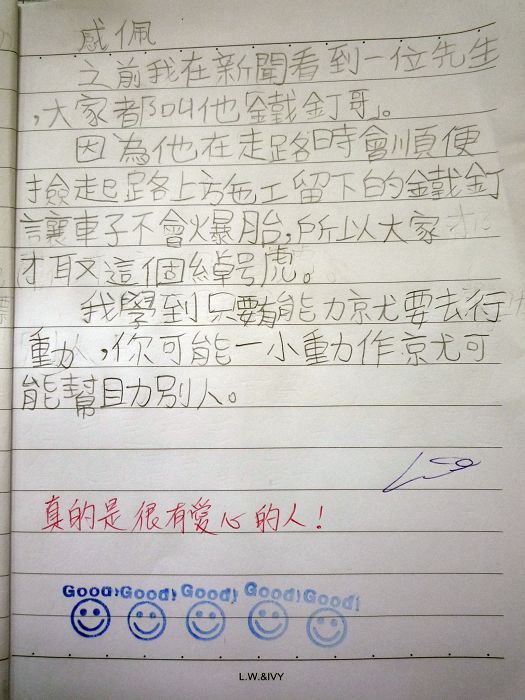 感佩
之前我在新聞看到一位先生
,大家都叫他「鐵釘哥」。
因為他在走路時會順便
撿起路上施工留下的鐵釘
讓車子不會爆胎,所以大家
才取這個綽號。
我學到只要有能力就要去行
動,你可能一小動作就可
能幫助別人。
真的是很有愛心的人!
Good! Good! Good! Good! Good!
L.W.&IVY